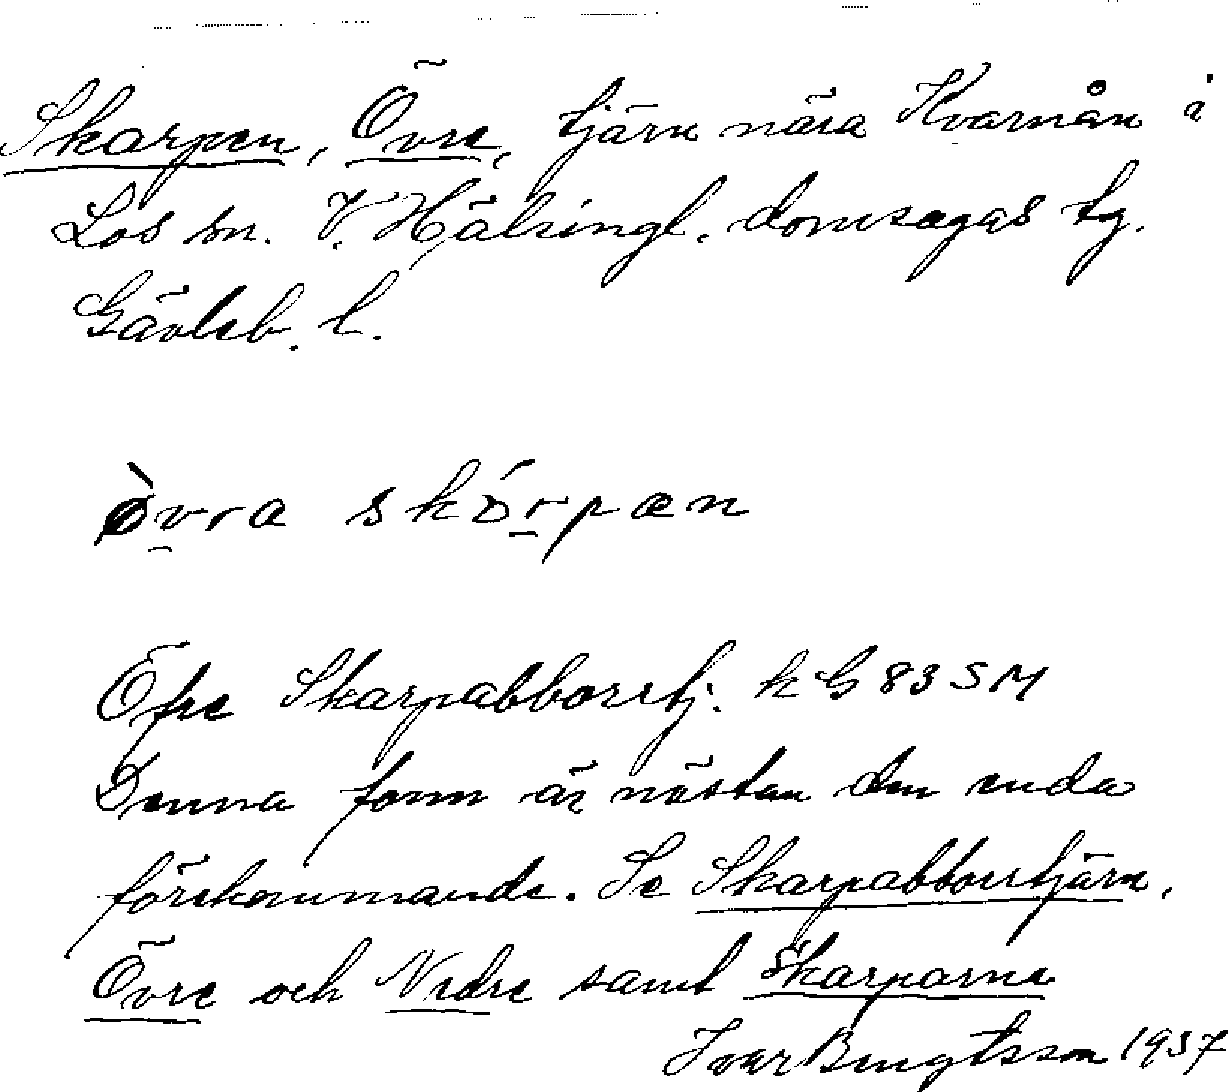 Skarpen, Övre, tjärn nära Kvarnån i
Los sn. V. Hälsingl. domsagas tg.
Gävleb. l.
òvra skórpæn
Öfre Skarpabborrtj. k G 83 S M
Denna form är nästan den enda
förekommande. Se Skarpabborrtjärn,
Övre och Nedre samt Skarparna
Ivar Bengtsson 1937